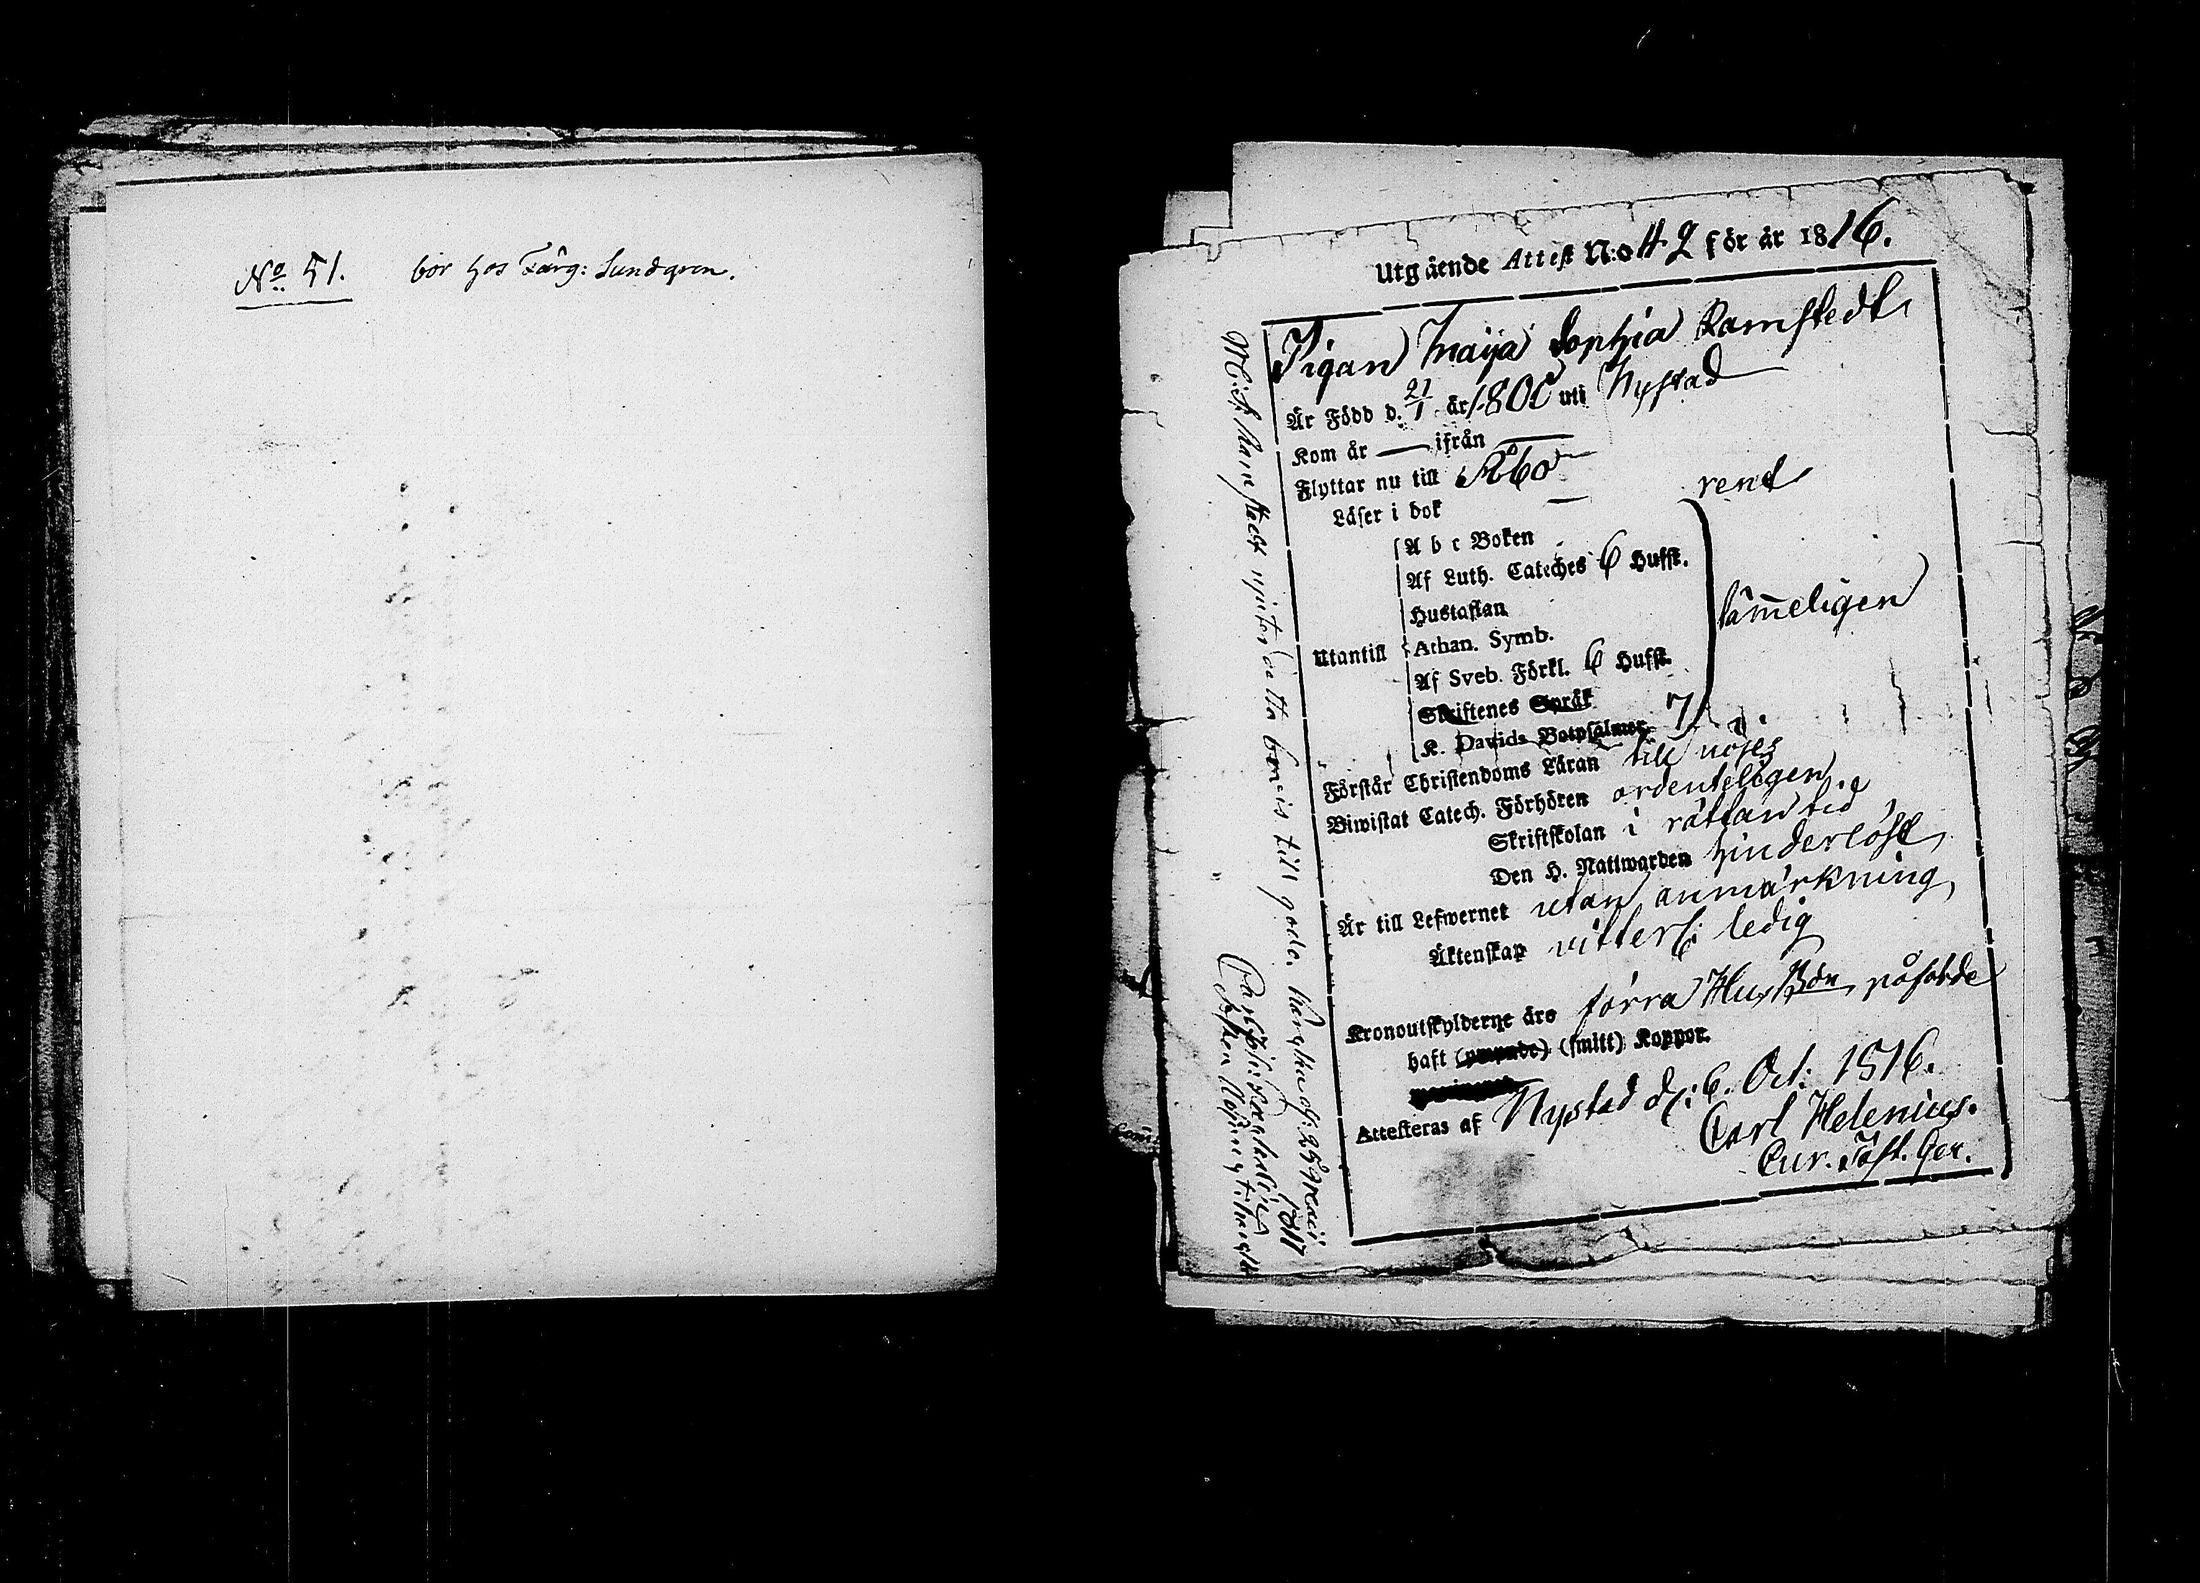 No 51. bor hos Färg: Sundgren.
Utgående Attest N:o 42 för år 1816.
Pigan Maija Sophia Ramstedt
Är Född d. 21/1 år 1800 uti Nystad
Kom år — ifrån —
Flyttar nu till Åbo
Läser i bok — rent
A b c Boken
Af Luth. Cateches 6 Hufst.
Hustaflan
Utantill Athan. Symb. sämmeligen
Af Sveb. Förkl. 6 Hufst.
Skriftenes Språk
K. Davids Botpsalmer 7
Förstår Christendoms Läran till nöjes
Biwistat Catech. Förhören ordenteligen
Skriftskolan i rättan tid
Den H. Nattwarden hinderlöst
Är till Lefwernet utan anmärkning
Äktenskap vitterl: ledig
Kronoutskylderne äro förra Husbön. påförde
haft (ympade) (smitt) Koppor.
Attesteras af Nystad d: 6. Oct: 1816.
Carl Helenius.
Cur. Past. Ger.
M: S: Ramstedt njuter detta bevis till godo. 25 Maii
1817